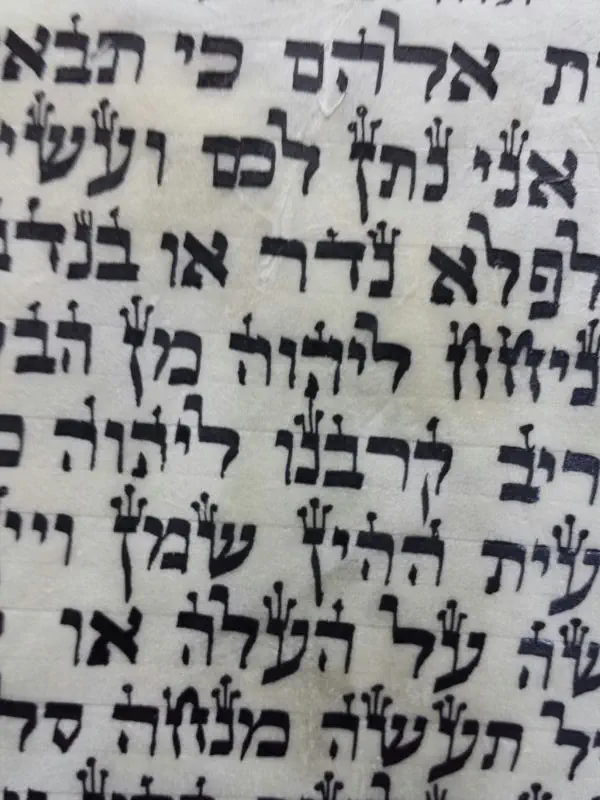 ת אלהם כי תבא
אני נתן לכם ועשי
לפלא נדר או בנדב
ניחח ליהוה מן הב
ריב קרבנו ליהוה
עית ההין שמן ויי
שה על העלה או
יל תעשה מנחה סל